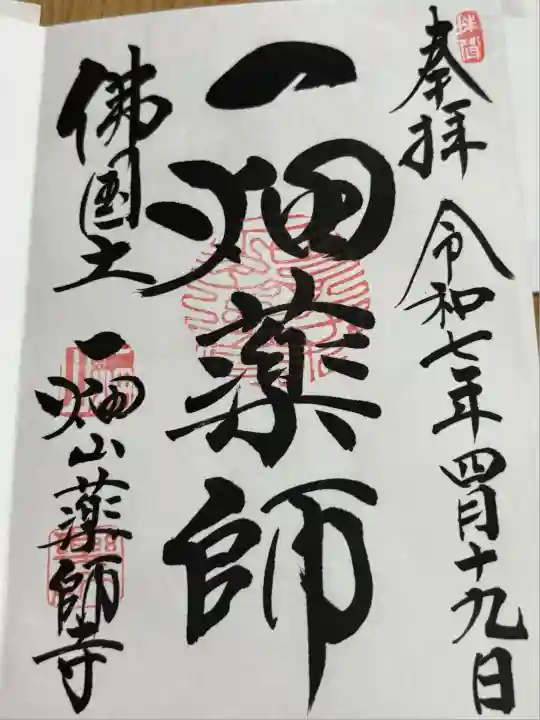 奉拝 令和七年四月十九日
一畑薬師
佛国土 一畑山薬師寺